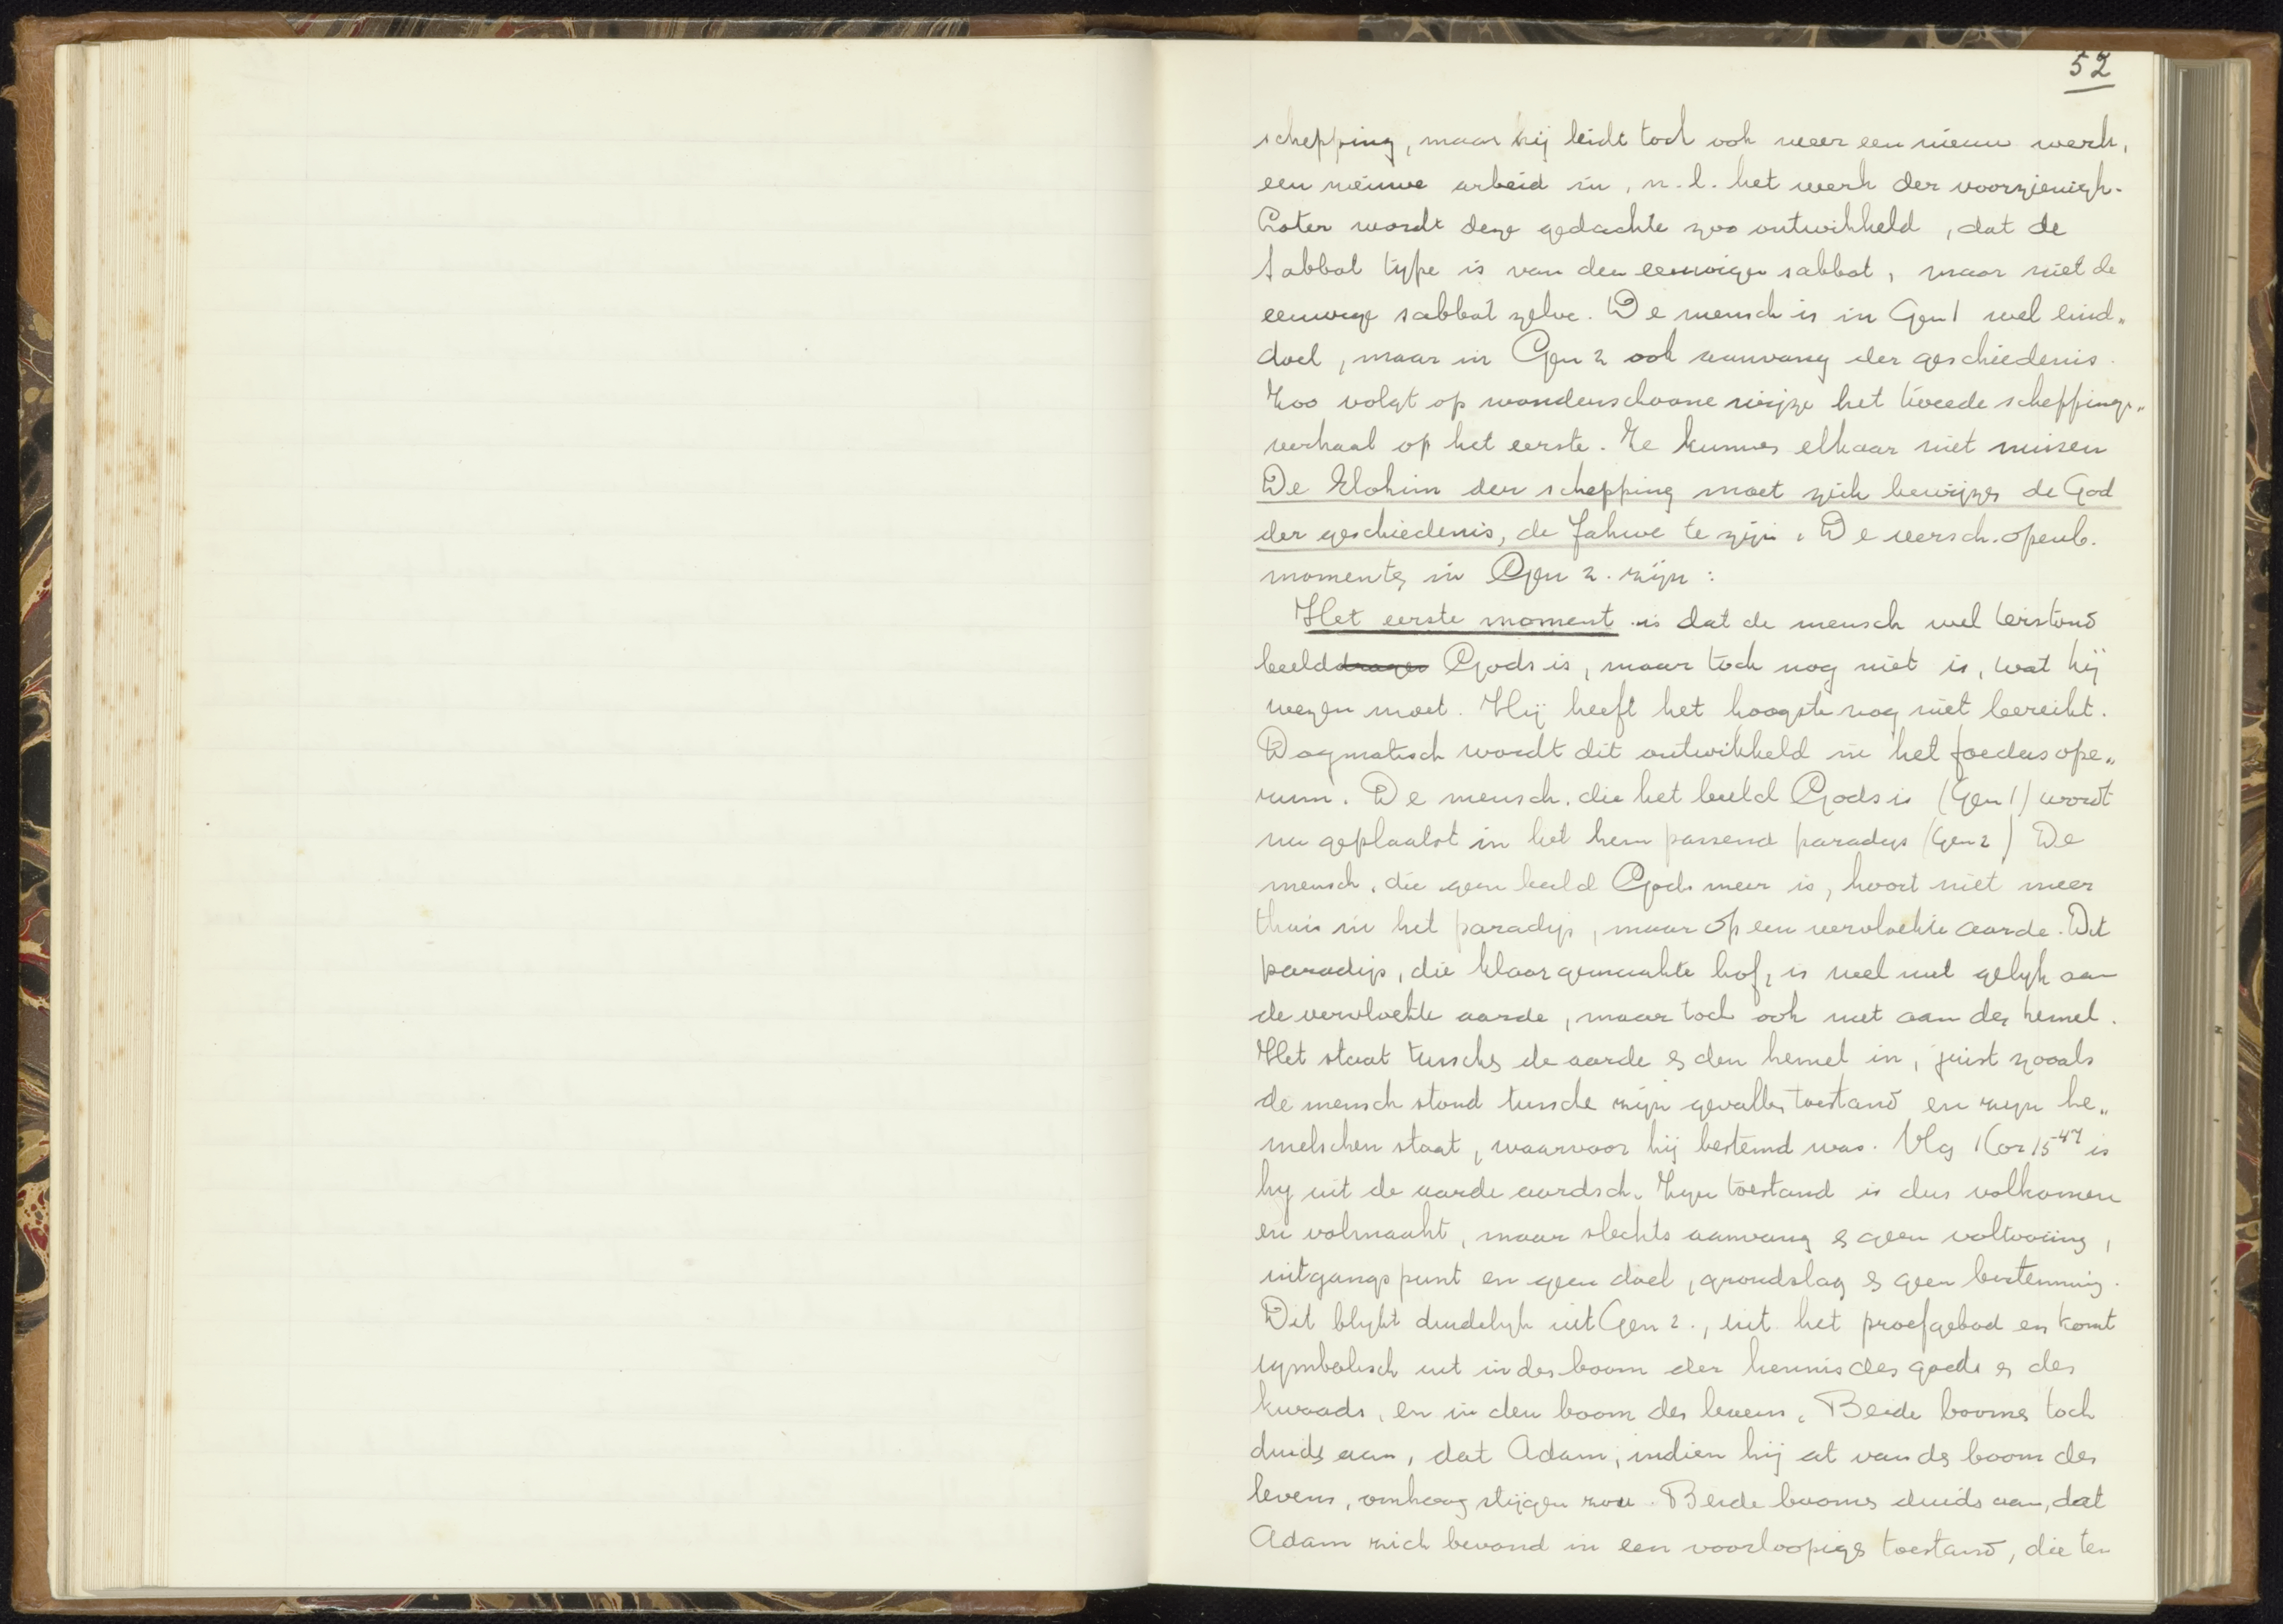 52
schepping, maar hij leidt toch ook weer een nieuw werk,
een nieuwe arbeid in, n.l. het werk der voorzienigh.
Later wordt deze gedachte zoo ontwikkeld, dat de
sabbat type is van den eeuwigen sabbat, maar niet de
eeuwige sabbat zelve. De mensch is in Gen 1 wel eind„
doel, maar in Gen 2 ook aanvang der geschiedenis.
Zoo volgt op wonderschoone wijze het tweede scheppings„
verhaal op het eerste. Ze kunnen elkaar niet missen
De Elohim der schepping moet zich bewijzen de God
der geschiedenis, de Jahwe te zijn. De versch. openb.
momenten in Gen 2. zijn:
Het eerste moment is dat de mensch wel terstond
beelddrager Gods is, maar toch nog niet is, wat hij
wezen moet. Hij heeft het hoogste nog niet bereikt.
Dogmatisch wordt dit ontwikkeld in het foedus ope„
rum. De mensch, die het beeld Gods is (Gen 1) wordt
nu geplaatst in het hem passend paradijs (Gen 2) De
mensch, die geen beeld Gods meer is, hoort niet meer
thuis in het paradijs, maar op een vervloekte aarde. Dit
paradijs, die klaargemaakte hof, is wel niet gelijk aan
de vervloekte aarde, maar toch ook niet aan den hemel.
Het staat tusschen de aarde en den hemel in, juist zooals
de mensch stond tussche zijn gevallen toestand en zijn he„
melschen staat, waarvoor hij bestemd was. Vlg 1 Cor 15 47 is
hij uit de aarde aardsch. Zijn toestand is dus volkomen
en volmaakt, maar slechts aanvang en geen voltooiing,
uitgangspunt en geen doel, grondslag en geen bestemming.
Dit blijkt duidelijk uit Gen 2., uit het proefgebod en komt
symbolisch uit in den boom der kennis des goeds en des
kwaads, en in den boom des levens. Beide boomen toch
duiden aan, dat Adam, indien hij at van den boom des
levens, omhoog stijgen zou. Beide boomen duiden aan, dat
Adam zich bevond in een voorloopigen toestand, die ten